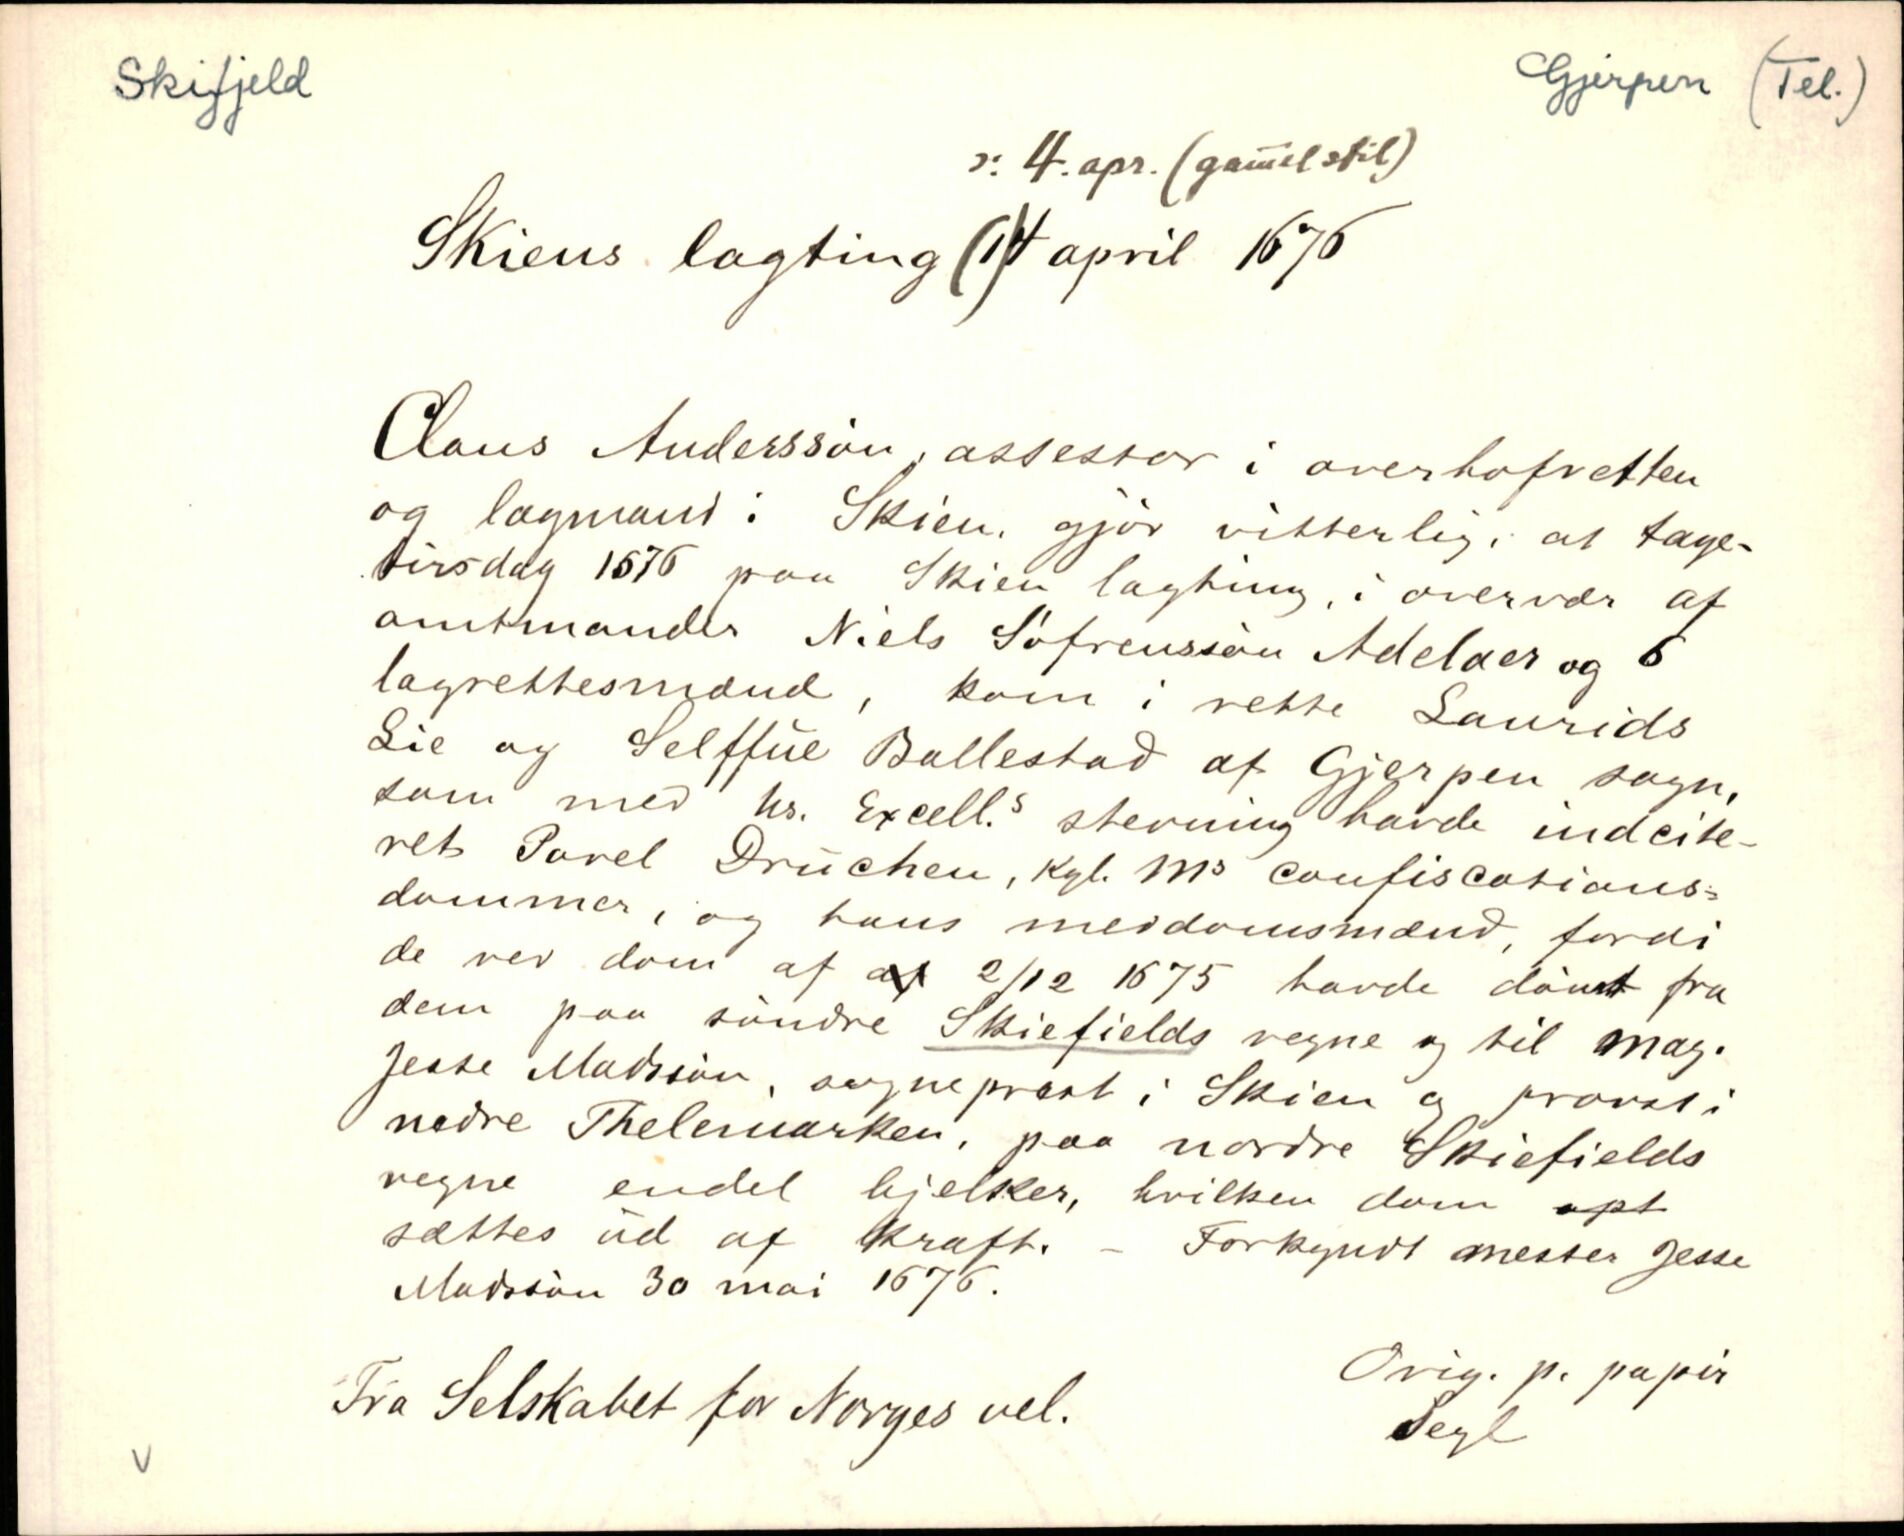 Skifjeld
Gjerpen (Tel.)
ɔ: 4. apr. (gam̄el stil)
Skiens lagting (1)4 april 1676
Claus Anderssön, assessor i overhofretten
og lagmand i Skien, gjör vitterlig, at tage-
tirsdag 1676 paa Skien lagting, i overvær af
amtmander Niels Söfrenssön Adelaer og 6
lagrettesmænd, kom i rette Laurids
Lie og Selffue Ballestad af Gjerpen sogn,
som med hs. Excell.s stevning havde indcite-
ret Povel Drüchen, Kgl. Ms confiscations=
dommer, og hans meddomsmænd, fordi
de ved dom af af 2/12 1675 havde dömt fra
dem paa söndre Skiefields vegne og til mag.
Jesse Madssön, sogneprest i Skien og provst i
nedre Thelemarken, paa nordre Skiefields
vegne endel bjelker, hvilken dom opt
sættes ud af kraft. – Forkyndt mester Jesse
Madssön 30 mai 1676.
Orig. p. papir
Fra Selskabet for Norges vel.
Segl
V